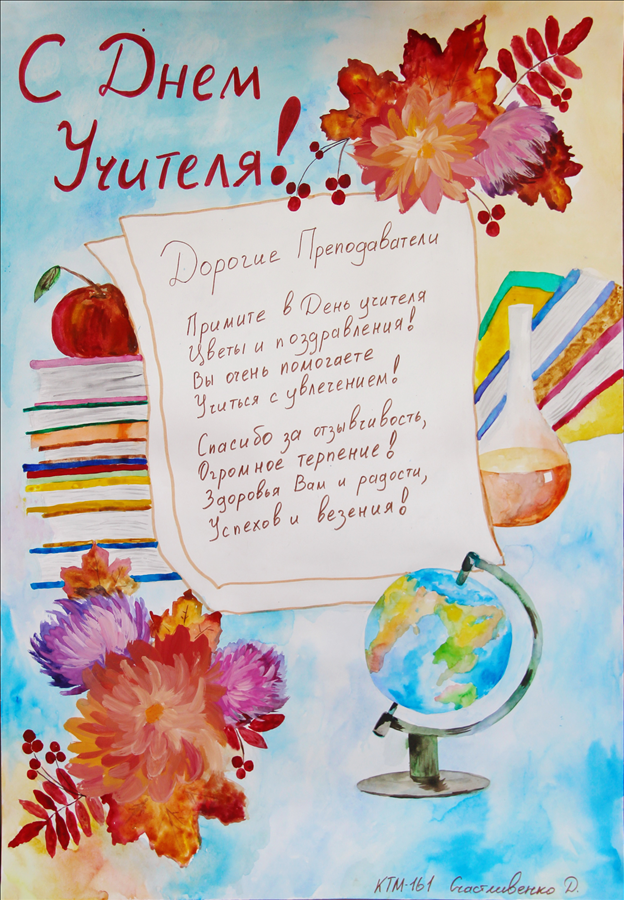 С Днем
Учителя!
Дорогие Преподаватели
Примите в День учителя
Цветы и поздравления!
Вы очень помогаете
Учиться с увлечением!
Спасибо за отзывчивость,
Огромное терпение!
Здоровья Вам и радости,
Успехов и везения!
КТМ-161 Счастливенко Д.